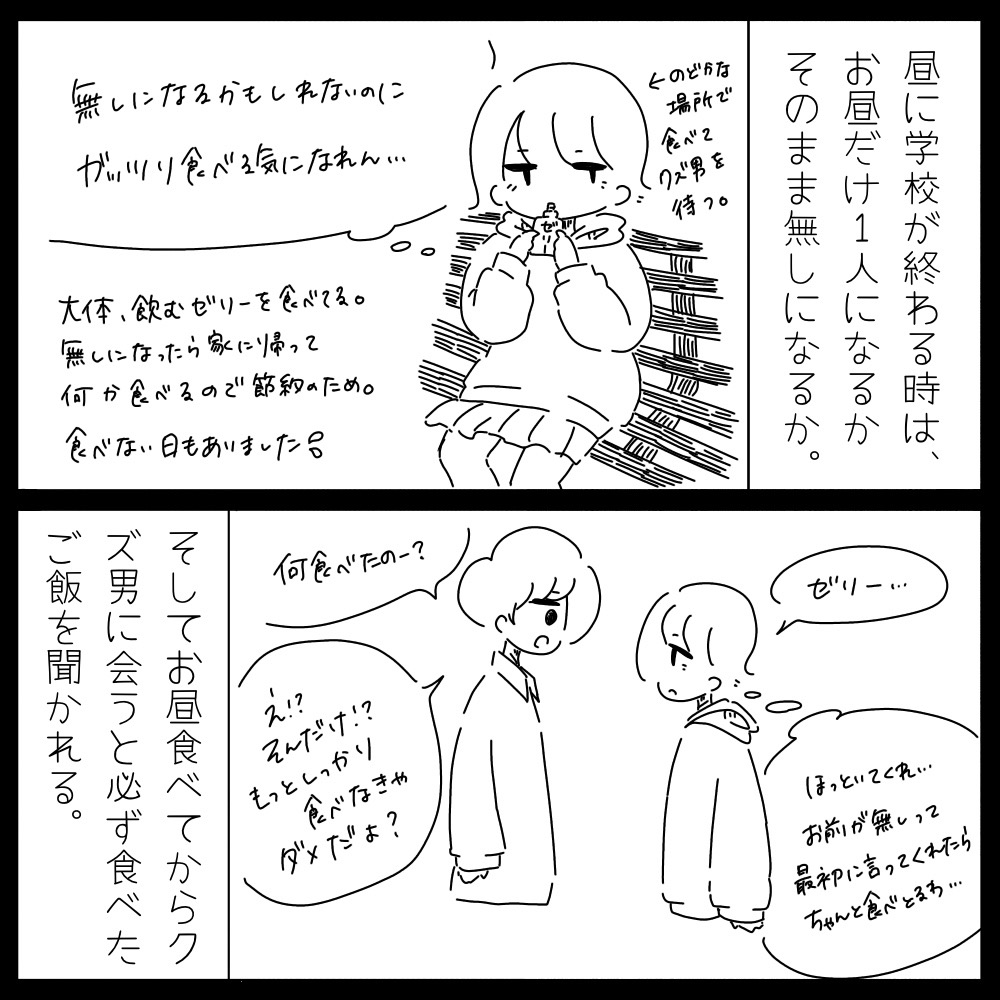 昼に学校が終わる時は、
お昼だけ1人になるか
そのまま無しになるか。
←のどかな
場所で
食べて
クズ男を
待つ。
無しになるかもしれないのに
ガッツリ食べる気になれん…
ゼ
リ
大体、飲むゼリーを食べてる。
無しになったら家に帰って
何か食べるので節約のため。
食べない日もありました
ゼリー…
何食べたのー?
え!?
そんだけ!?
もっとしっかり
食べなきゃ
ダメだよ?
ほっといてくれ…
お前が無しって
最初に言ってくれたら
ちゃんと食べとるわ…
そしてお昼食べてからク
ズ男に会うと必ず食べた
ご飯を聞かれる。